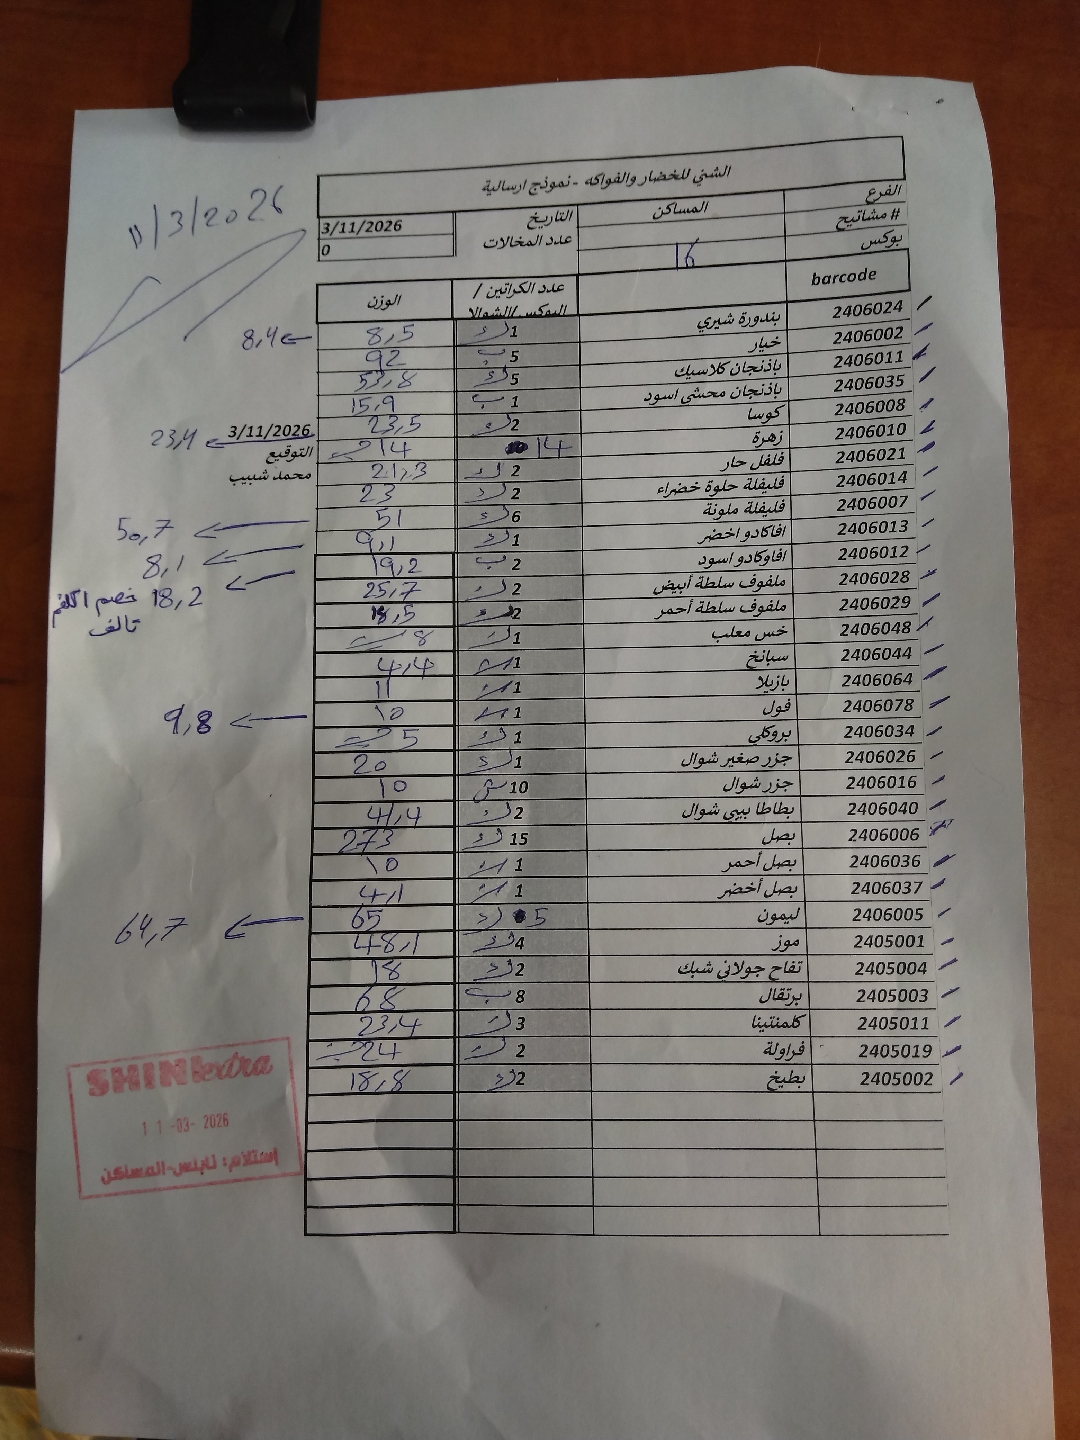 الشني للخضار والفواكه - نموذج ارسالية
الفرع المساكن التاريخ 3/11/2026
# مشاتيح عدد المخالات 0
بوكس 16
11/3/2026
barcode عدد الكراتين / البوكس/الشوالا الوزن
2406024 بندورة شيري 1 ك 8,5 8,4
2406002 خيار 5 ب 92
2406011 باذنجان كلاسيك 5 ك 53,8
2406035 باذنجان محشي اسود 1 ب 15,9
2406008 كوسا 2 ك 23,5 3/11/2026 23,4
2406010 زهرة 14 14 حبة التوقيع
2406021 فلفل حار 2 ك 21,3 محمد شبيب
2406014 فليفلة حلوة خضراء 2 ك 23
2406007 فليفلة ملونة 6 ك 51 50,7
2406013 افاكادو اخضر 1 ك 9,1 8,1
2406012 افاوكادو اسود 2 ب 19,2 18,2 خصم 1 كلغم تالف
2406028 ملفوف سلطة أبيض 2 ك 25,7
2406029 ملفوف سلطة أحمر 2 ك 18,5
2406048 خس معلب 1 ك 8 حبة
2406044 سبانخ 1 4,4
2406064 بازيلا 1 11
2406078 فول 1 10 9,8
2406034 بروكلي 1 ك 5 حبة
2406026 جزر صغير شوال 1 ك 20
2406016 جزر شوال 10 ش 10
2406040 بطاطا بيبي شوال 2 ك 41,4
2406006 بصل 15 ك 273
2406036 بصل أحمر 1 10
2406037 بصل أخضر 1 4,1
2406005 ليمون 5 ك 65 64,7
2405001 موز 4 ك 48,1
2405004 تفاح جولاني شبك 2 ك 18
2405003 برتقال 8 ب 68
2405011 كلمنتينا 3 ك 23,4
2405019 فراولة 2 ك 24 حبة
2405002 بطيخ 2 ك 18,8
SHINI extra
11 -03- 2026
إستلام: نابلس-المساكن